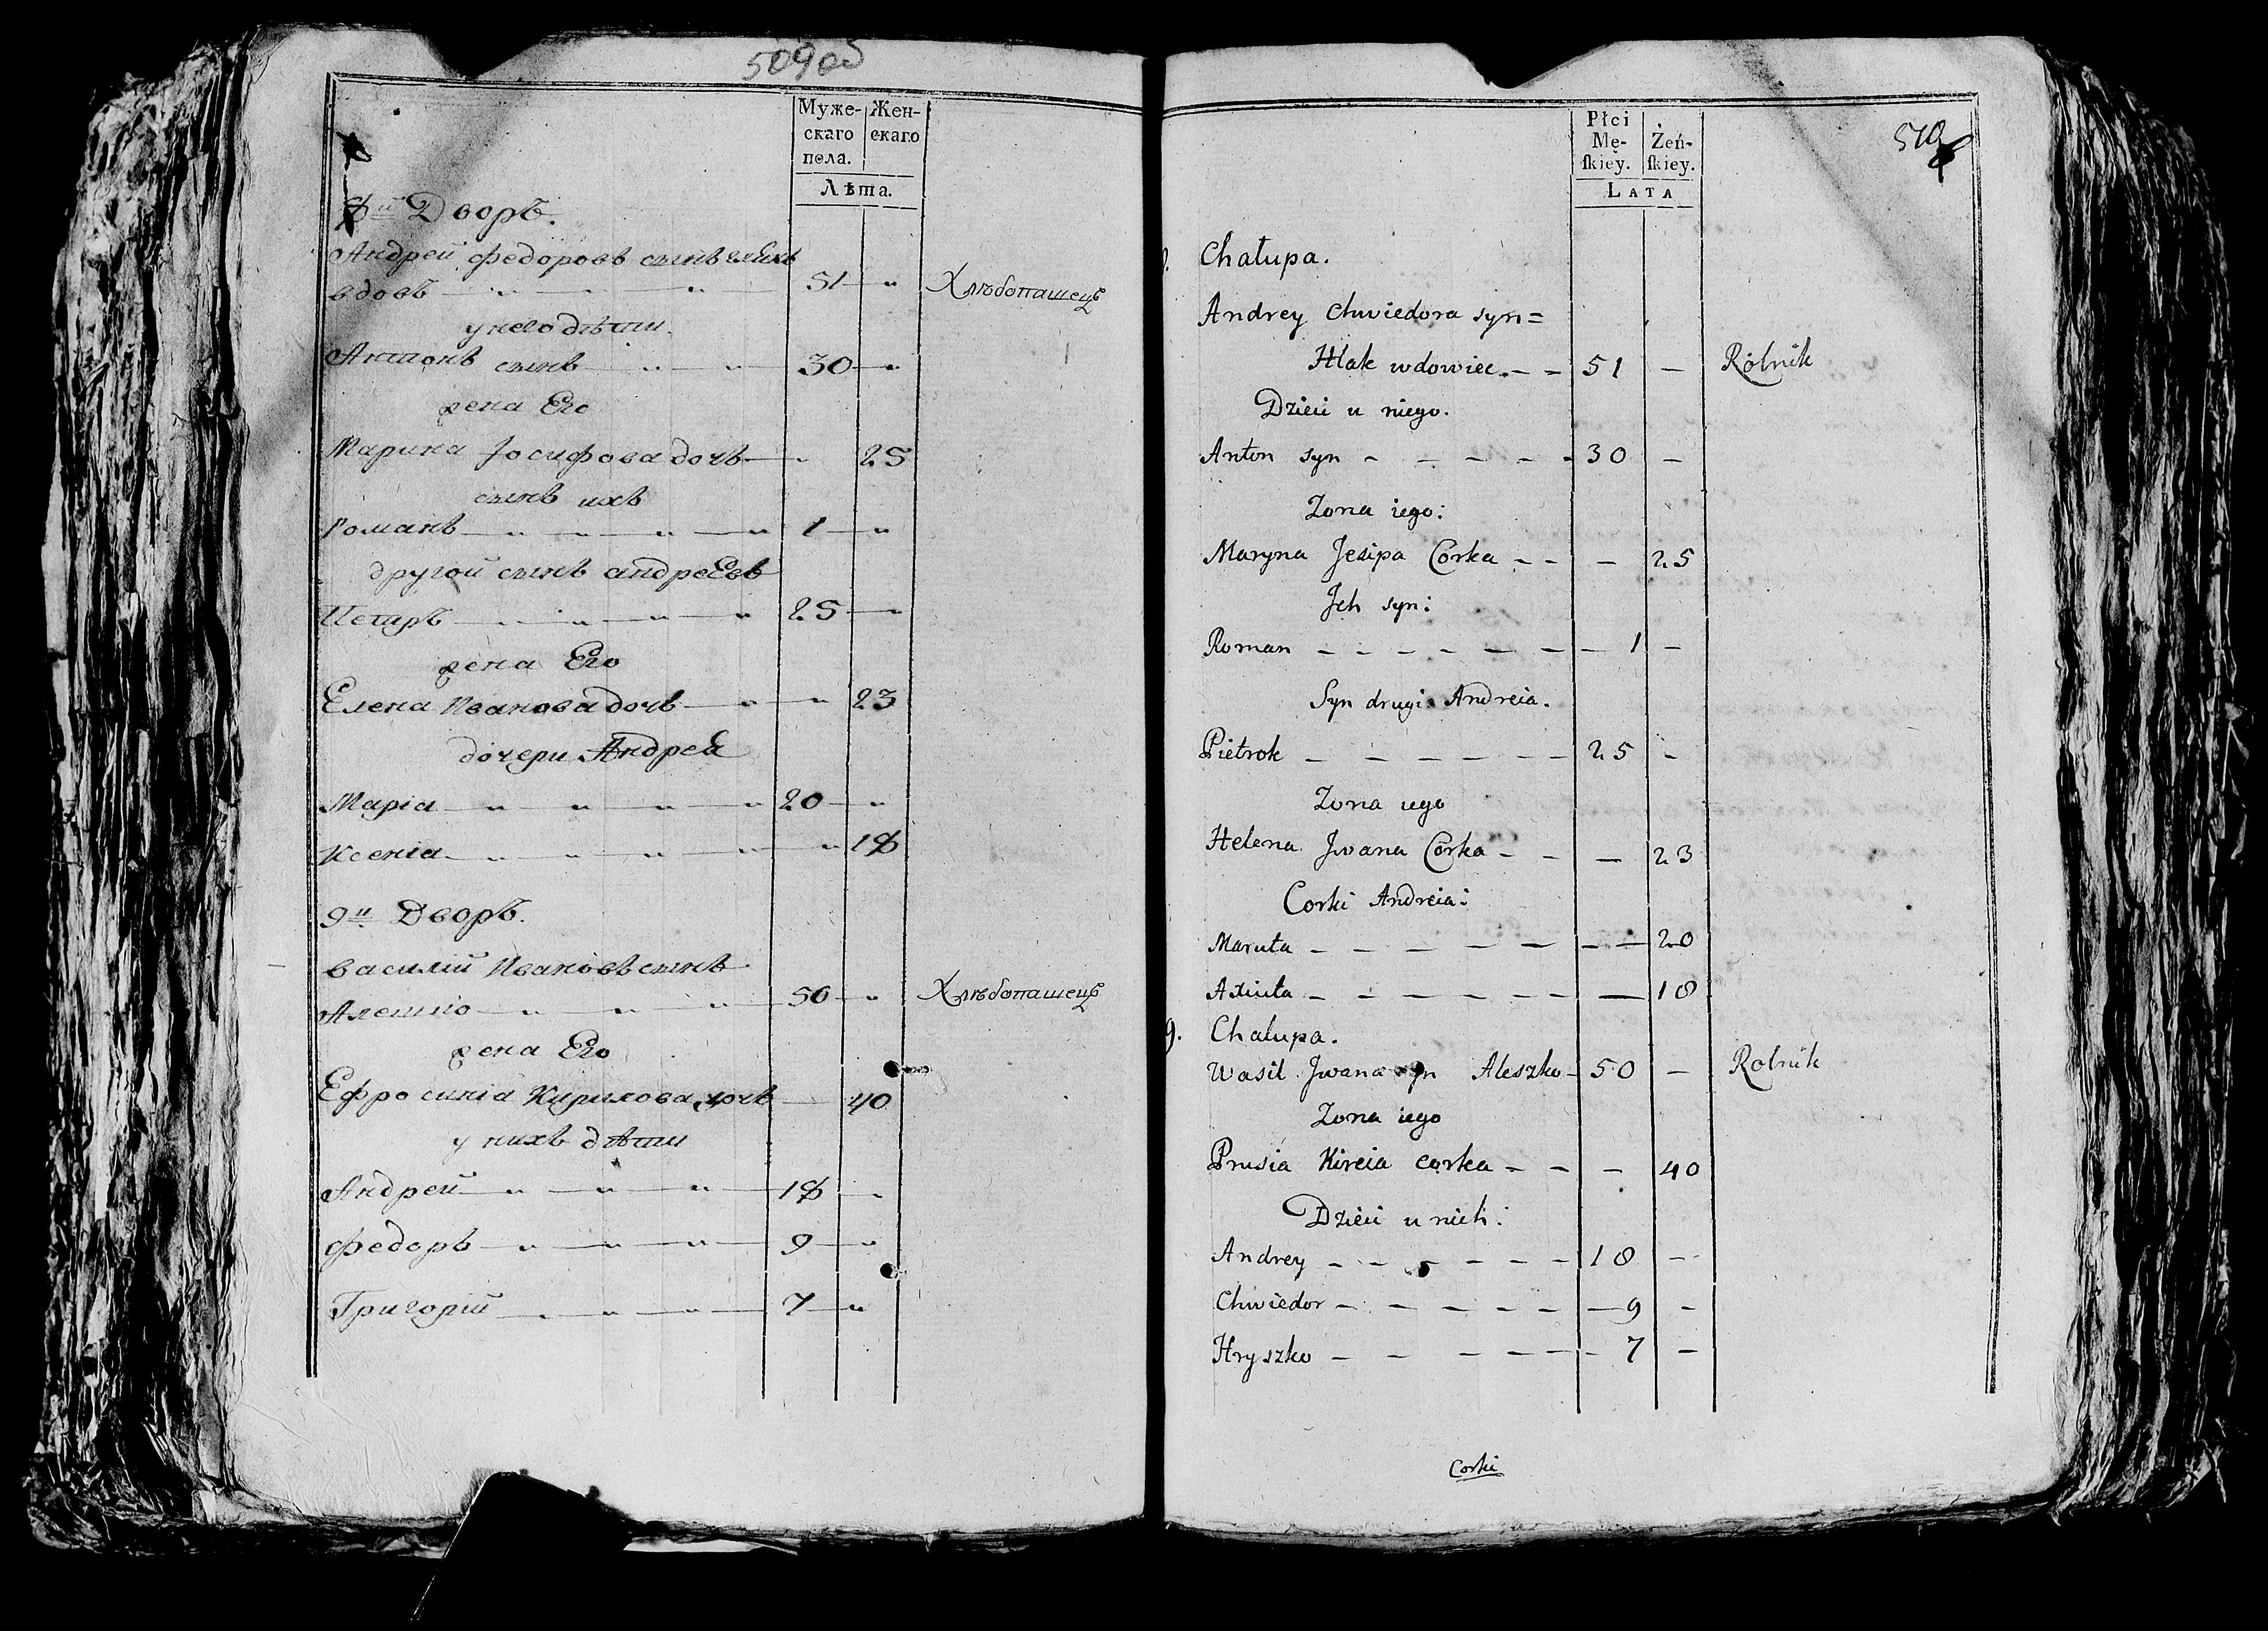 509 об
Муже-
скаго
пола.
Жен-
скаго
Лѣта.
8й Дворъ.
Андрей федоровъ сынъ
вдовъ 51 „ Хлѣбопашецъ
у него дѣти.
Антонъ сынъ 30 „
жена Его
Марина Іосифова дочь „ 25
сынъ ихъ
Романъ 1 „
другой сынъ андреевъ
Петръ 25 „
жена Его
Елена Иванова дочь „ 23
дочери Андрея
Марія 20 „
Ксенія „ 18
9й Дворъ.
василій Ивановъ сынъ
Алешко 50 „ Хлѣбопашецъ
жена Его
Ефросинія Кирилова дочь 40
у нихъ дѣти
Андрей 18 „
федоръ 9 „
Григорій 7 „
510
Płci
Mę-
skiey.
Żeń-
skiey.
LATA
8. Chałupa.
Andrey Chwiedora syn=
Hlak wdowiec. – – 51 – Rolnik
Dzieci u niego.
Anton syn – – – – – 30 –
Zona iego:
Maryna Jesipa Corka – – – 25
Jch syn:
Roman – – – – – – – 1 –
Syn drugi Andreia.
Pietrok – – – – – – 25 –
Zona iego
Helena Jwana Corka – – – 23
Corki Andreia:
Maruta – – – – – – – – 20
Axiuta – – – – – – – 18
9. Chalupa.
Wasil Jwana syn Aleszko – 50 – Rolnik
Zona iego
Prusia Kireia corka – – – 40
Dzieci u nich:
Andrey – – – – – – 18 –
Chwiedor – – – – – – – 9 –
Hryszko – – – – – – – 7 –
Corki